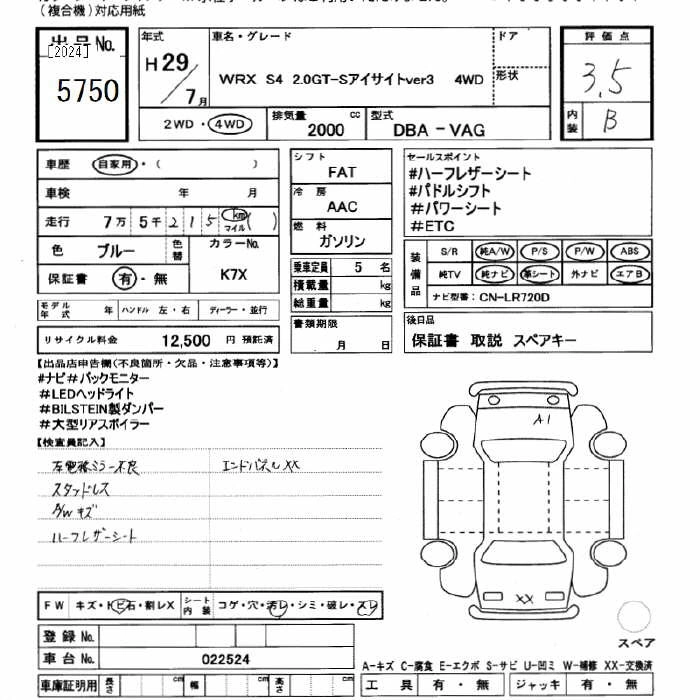 (複合機)対応用紙
出品No.
[2024]
5750
年式 車名・グレード ドア 評価点
H 29 / 7月 WRX S4 2.0GT-Sアイサイトver3 4WD 形状 3.5
2WD・4WD 排気量 2000 cc 型式 DBA-VAG 内装 B
車歴 自家用・( )
車検 年 月
走行 7万 5千 2 1 5 km マイル ( )
色 ブルー 色替 カラーNo. K7X
保証書 有・無
モデル年式 年 ハンドル 左・右 ディーラー・並行
リサイクル料金 12,500 円 預託済
シフト FAT
冷房 AAC
燃料 ガソリン
乗車定員 5 名
積載量 kg
総重量 kg
書類期限 月 日
セールスポイント
#ハーフレザーシート
#パドルシフト
#パワーシート
#ETC
装備品 S/R 純A/W P/S P/W ABS
純TV 純ナビ 革シート 外ナビ エアB
ナビ型番: CN-LR720D
後日品
保証書 取説 スペアキー
【出品店申告欄(不良箇所・欠品・注意事項等)】
#ナビ#バックモニター
#LEDヘッドライト
#BILSTEIN製ダンパー
#大型リアスポイラー
【検査員記入】
左電格ミラー不良 エンドパネルXX
スタッドレス
A/Wキズ
ハーフレザーシート
A1
XX
FW キズ・トビ石・割レX シート内装 コゲ・穴・汚レ・シミ・破レ・スレ
登録No.
車台No. 022524
スペア
A-キズ C-腐食 E-エクボ S-サビ U-凹ミ W-補修 XX-交換済
車庫証明用 長さ cm 幅 cm 高さ cm 工具 有・無 ジャッキ 有・無